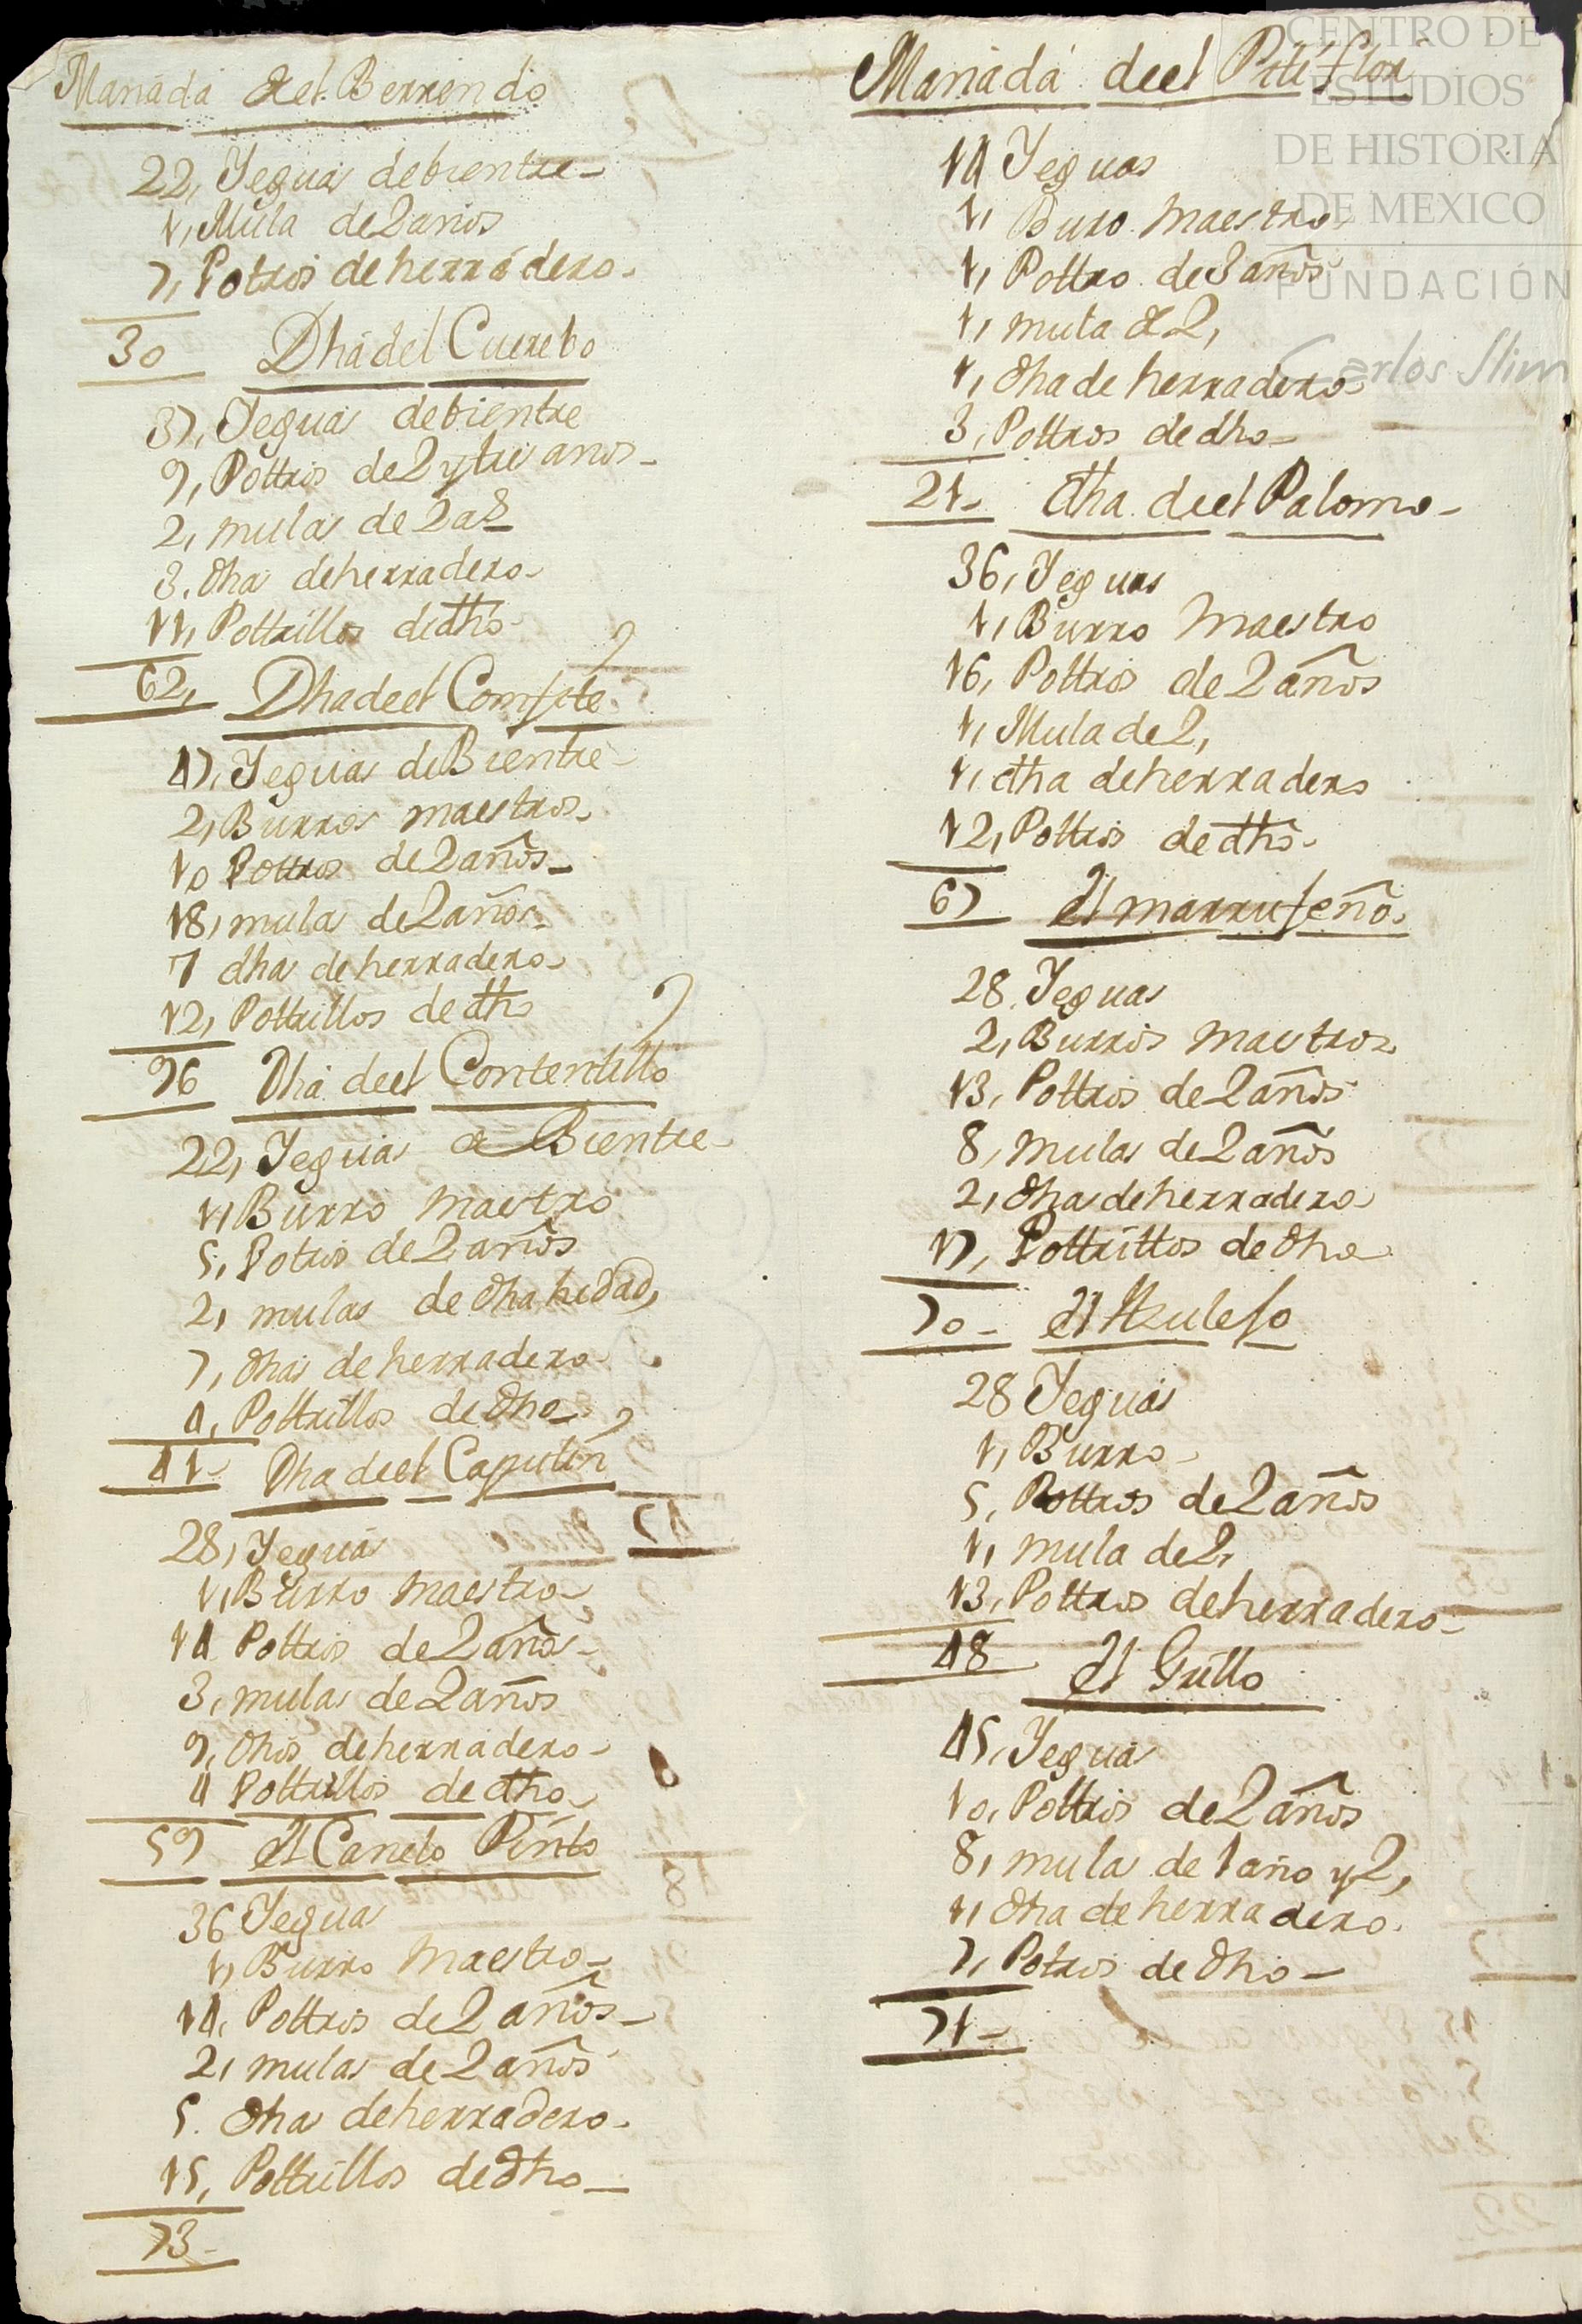 Manada del Berrendo
22, Yeguas debientre
1, Mula de 2 anos
7, Potros de herradero
30 Dha del Cuerebo
37, Yeguas debientre
9, Pottros de 2 y tres anos
2, mulas de 2 a 3
3. dhas deherradero
11, Pottrillos de dho
62, Dha de el Comfite
47, Yeguas de Bientre
2, Burros maestros
10 Pottros de 2 años
18, mulas de 2 años
7 dhas deherradero
12, Pottrillos de dho
96 Dha de el Contentillo
22, Yeguas de Bientre
1, Burro maestro
5, Potros de 2 años
2, mulas de dha hedad,
7, dhas de herradero
4, Pottrillos de dho
41 Dha de el Capulin
28, Yeguas
1, Burro maestro
14 Pottros de 2 años
3, mulas de 2 años
9, dhos deherradero
4 Pottrillos de dho
59 el Canelo Pinto
36 Yeguas
1, Burro maestro
14, Pottros de 2 años
2, mulas de 2 años
5. dhas deherradero
15, Pottrillos de dho
73
Manada de el flor
14 Yeguas
1, Buro maestro
1, Pottro de 3 años
1, mula de 2,
1, dha de herradero
3, Pottros de dho
21 dha de el Palomo
36, Yeguas
1, Burro maestro
16, Pottros de 2 años
1, Mula de 2,
1, dha deherradero
12, Pottros de dho
67 el marrufeño
28, Yeguas
2, Burros maestros
13, Pottros de 2 años
8, mulas de 2 años
2, dhas deherradero
17, Pottrillos de dho
70 el Azulejo
28 Yeguas
1, Burro
5, Pottros de 2 años
1, mula de 2,
13, Pottros deherradero
48 el Grillo
45, Yeguas
10, Pottros de 2 años
8, mulas de 1 año y 2,
1, dha de herradero
7, Potros de dho
71
CENTRO DE
ESTUDIOS
DE HISTORIA
DE MEXICO
FUNDACIÓN
Carlos Slim